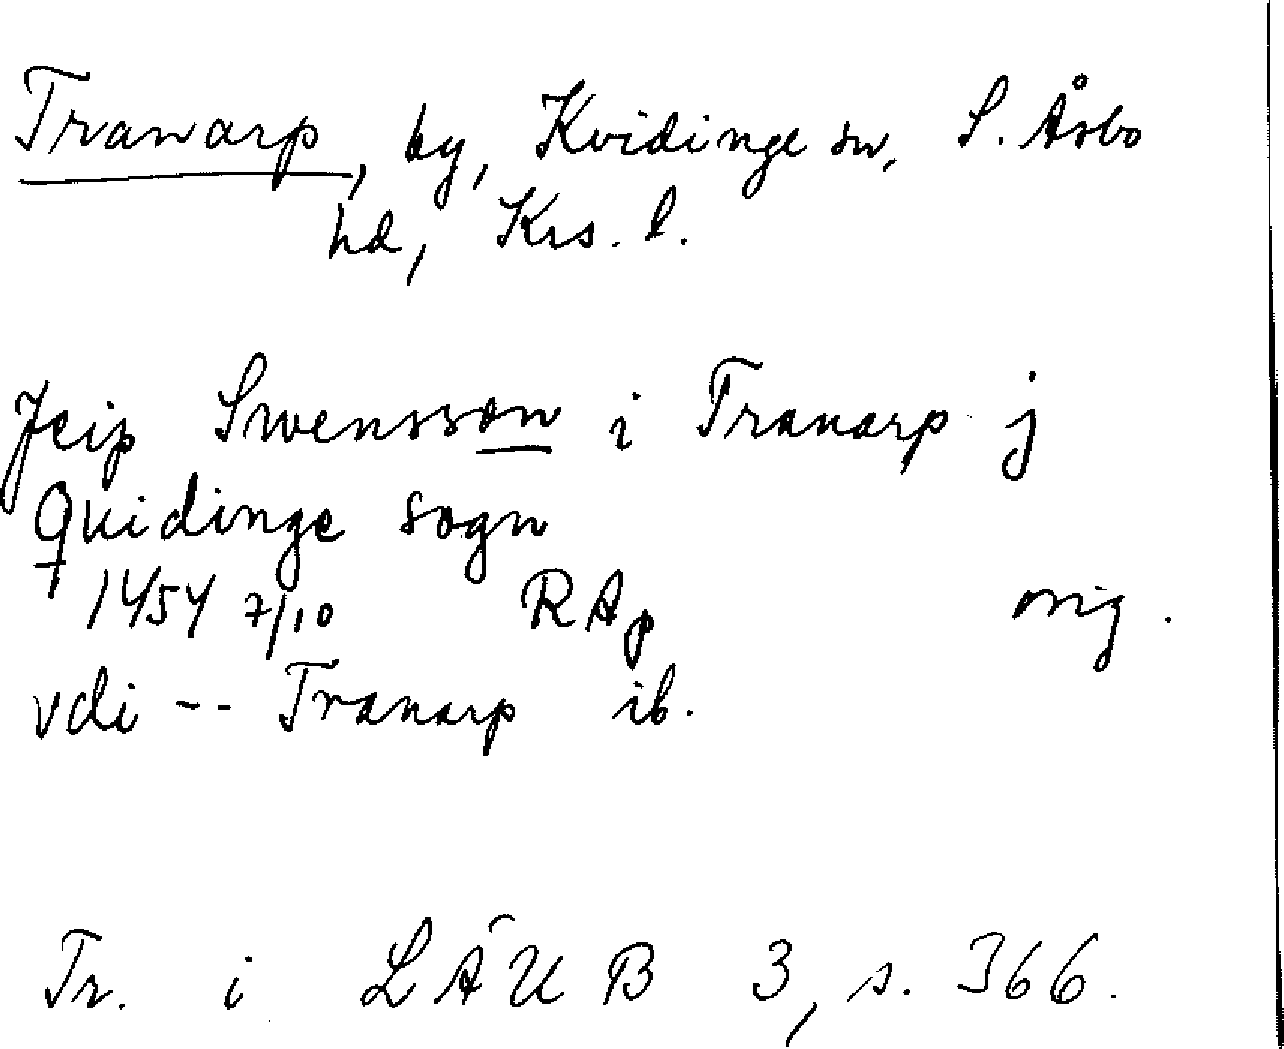 Tranarp, by, Kvidinge sn, S. Åsbo
hd, Krs. l.
Jeip Swensson i Tranarp j
Quidinge sogn
1454 7/10 RAp orig.
vdi -- Tranarp ib.
Tr. i LÄUB 3, s. 366.